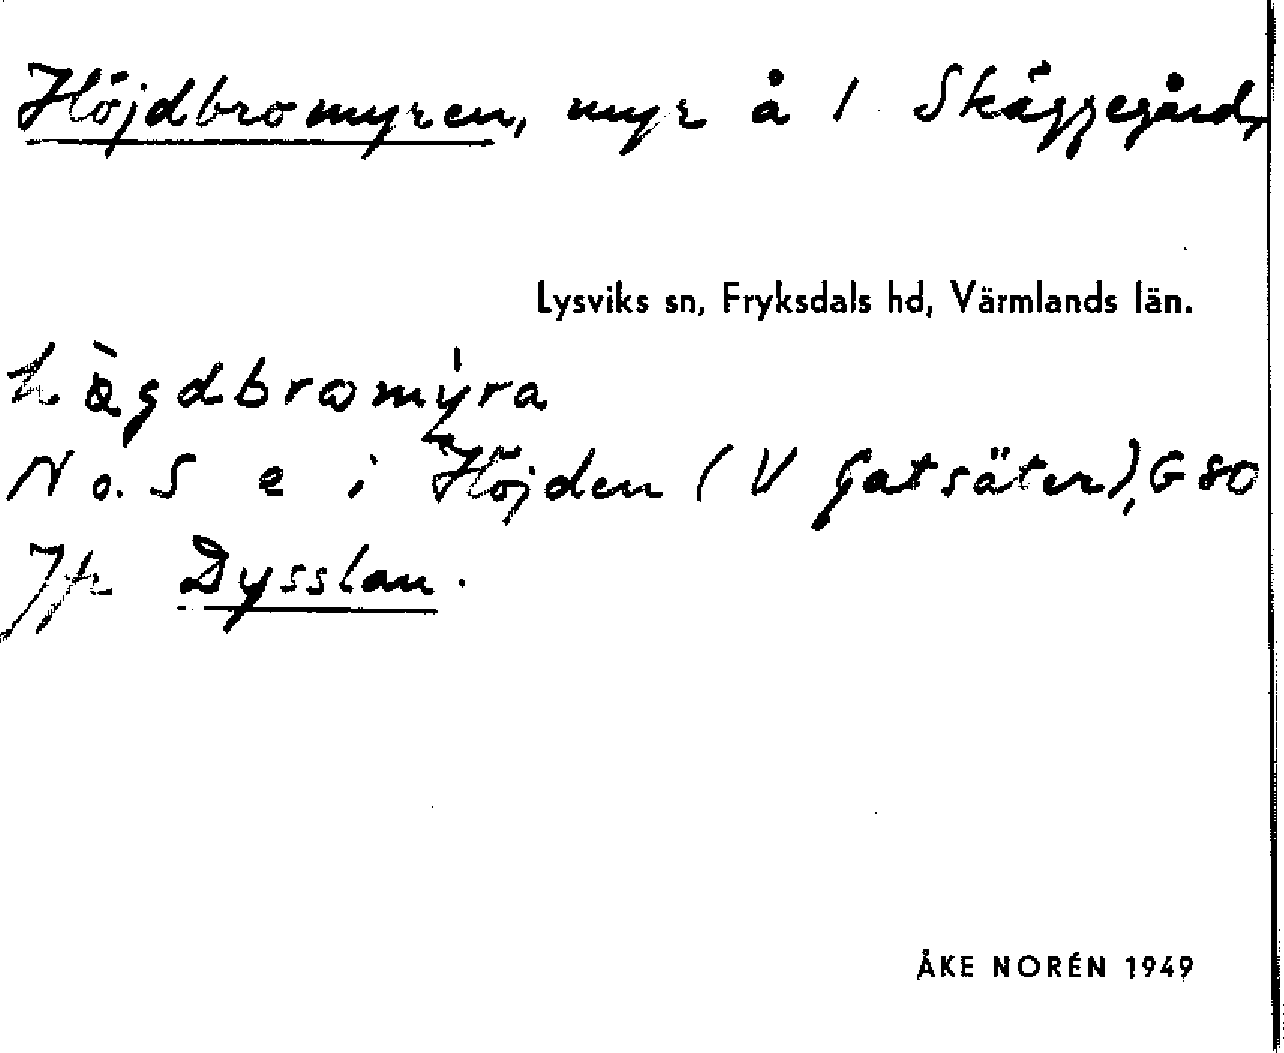 Höjdbromyren, myr å 1 Skäggegård,
Lysviks sn, Fryksdals hd, Värmlands län.
hə̀gdbromýra
N o. S e i Höjden (V Gatsäter), G 80
Jfr Dysslan.
ÅKE NORÉN 1949